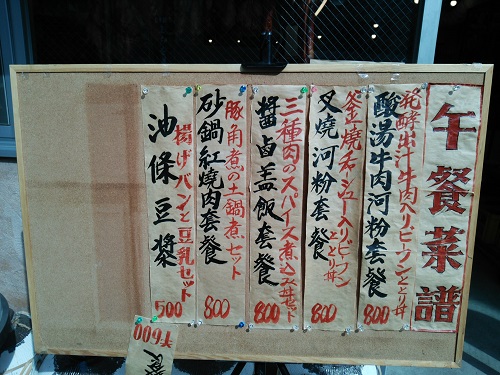 午餐菜譜
発酵出汁牛肉入りビーフンとミニ丼
酸湯牛肉河粉套餐
800
釜焼チャーシュー入りビーフン
とミニ丼
叉燒河粉套餐
800
三種肉のスパイス煮込み丼セット
醬鹵盖飯套餐
800
豚角煮の土鍋煮セット
砂鍋紅燒肉套餐
800
揚げパンと豆乳セット
油條豆漿
500